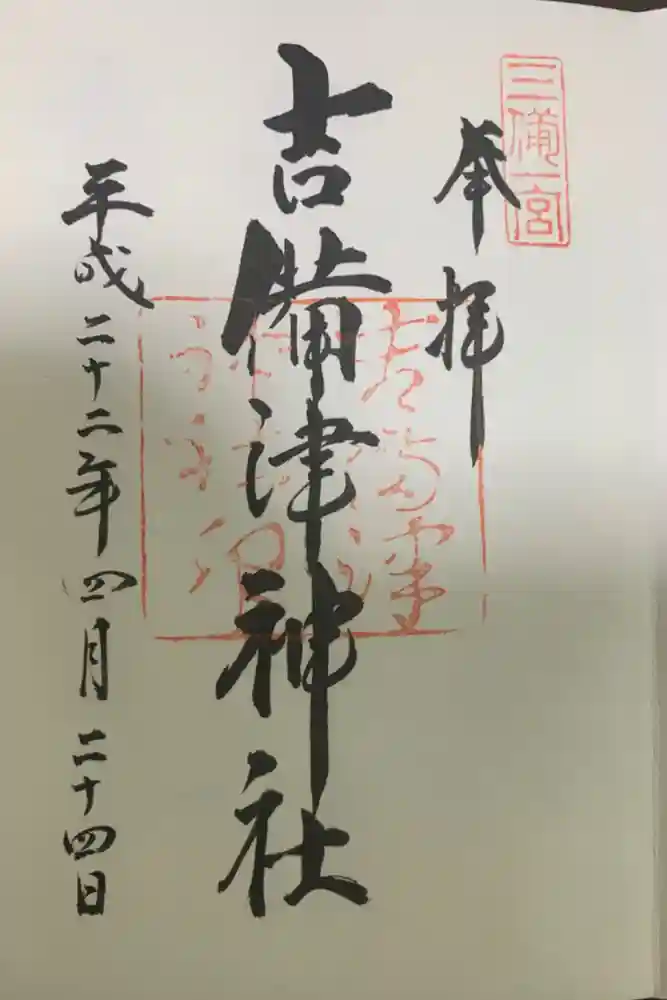 三備一宮
奉拝
吉備津神社
平成二十二年四月二十四日